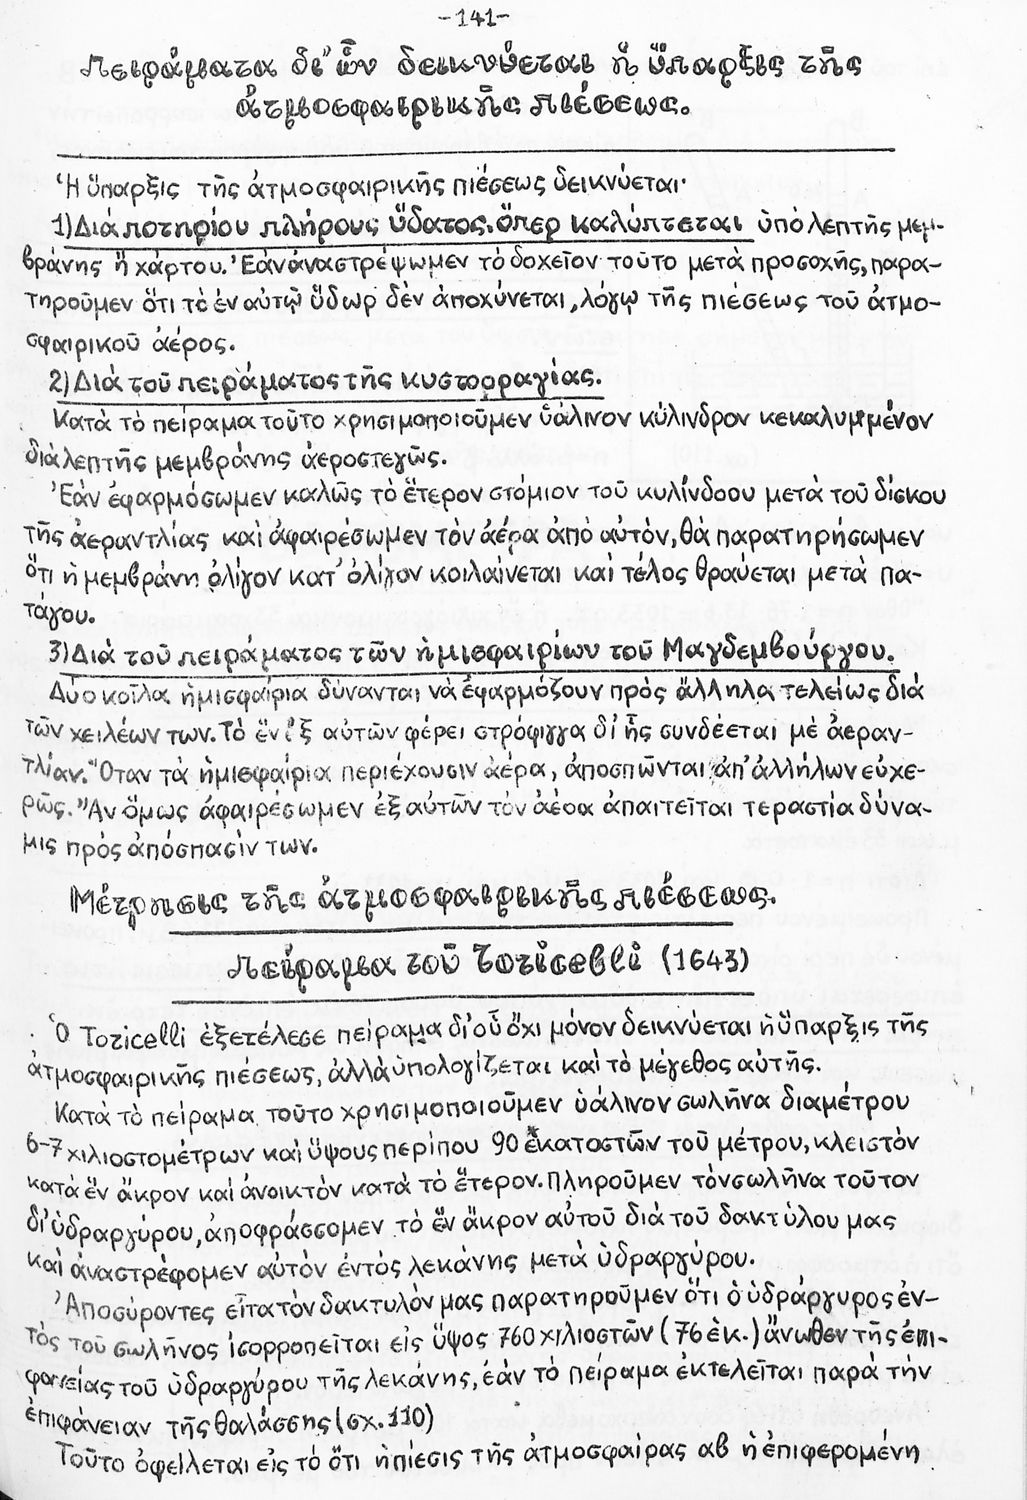 -141-
Πειράματα δι' ὧν δεικνύεται ἡ ὕπαρξις τῆς
ἀτμοσφαιρικῆς πιέσεως.
Ἡ ὕπαρξις τῆς ἀτμοσφαιρικῆς πιέσεως δεικνύεται·
1) Διά ποτηρίου πλήρους ὕδατος, ὅπερ καλύπτεται ὑπό λεπτῆς μεμ-
βράνης ἤ χάρτου. Ἐάν ἀναστρέψωμεν τό δοχεῖον τοῦτο μετά προσοχῆς, παρα-
τηροῦμεν ὅτι τό ἐν αὐτῷ ὕδωρ δέν ἀποχύνεται, λόγῳ τῆς πιέσεως τοῦ ἀτμο-
σφαιρικοῦ ἀέρος.
2) Διά τοῦ πειράματος τῆς κυστορραγίας.
Κατά τό πείραμα τοῦτο χρησιμοποιοῦμεν ὑάλινον κύλινδρον κεκαλυμμένον
διά λεπτῆς μεμβράνης ἀεροστεγῶς.
Ἐάν ἐφαρμόσωμεν καλῶς τό ἕτερον στόμιον τοῦ κυλίνδοου μετά τοῦ δίσκου
τῆς ἀεραντλίας καί ἀφαιρέσωμεν τόν ἀέρα ἀπό αὐτόν, θά παρατηρήσωμεν
ὅτι ἡ μεμβράνη ὀλίγον κατ' ὀλίγον κοιλαίνεται καί τέλος θραύεται μετά πα-
τάγου.
3) Διά τοῦ πειράματος τῶν ἡμισφαιρίων τοῦ Μαγδεμβούργου.
Δύο κοῖλα ἡμισφαίρια δύνανται νά ἐφαρμόζουν πρός ἄλληλα τελείως διά
τῶν χειλέων των. Τό ἕν ἐξ αὐτῶν φέρει στρόφιγγα δι' ἧς συνδέεται μέ ἀεραν-
τλίαν. Ὅταν τά ἡμισφαίρια περιέχουσιν ἀέρα, ἀποσπῶνται ἀπ' ἀλλήλων εὐχε-
ρῶς. Ἄν ὅμως ἀφαιρέσωμεν ἐξ αὐτῶν τόν ἀέρα ἀπαιτεῖται τεραστία δύνα-
μις πρός ἀπόσπασίν των.
Μέτρησις τῆς ἀτμοσφαιρικῆς πιέσεως.
Πείραμα τοῦ Toricelli (1643)
Ὁ Toricelli ἐξετέλεσε πείραμα δι' οὗ ὄχι μόνον δεικνύεται ἡ ὕπαρξις τῆς
ἀτμοσφαιρικῆς πιέσεως, ἀλλά ὑπολογίζεται καί τό μέγεθος αὐτῆς.
Κατά τό πείραμα τοῦτο χρησιμοποιοῦμεν ὑάλινον σωλῆνα διαμέτρου
6-7 χιλιοστομέτρων καί ὕψους περίπου 90 ἑκατοστῶν τοῦ μέτρου, κλειστόν
κατά ἕν ἄκρον καί ἀνοικτόν κατά τό ἕτερον. Πληροῦμεν τόν σωλῆνα τοῦτον
δι' ὑδραργύρου, ἀποφράσσομεν τό ἕν ἄκρον αὐτοῦ διά τοῦ δακτύλου μας
καί ἀναστρέφομεν αὐτόν ἐντός λεκάνης μετά ὑδραργύρου.
Ἀποσύροντες εἶτα τόν δακτυλόν μας παρατηροῦμεν ὅτι ὁ ὑδράργυρος ἐν-
τός τοῦ σωλῆνος ἰσορροπεῖται εἰς ὕψος 760 χιλιοστῶν (76 ἑκ.) ἄνωθεν τῆς ἐπι-
φανείας τοῦ ὑδραργύρου τῆς λεκάνης, ἐάν τό πείραμα ἐκτελεῖται παρά τήν
ἐπιφάνειαν τῆς θαλάσσης (σχ. 110)
Τοῦτο ὀφείλεται εἰς τό ὅτι ἡ πίεσις τῆς ἀτμοσφαίρας αβ ἡ ἐπιφερομένη